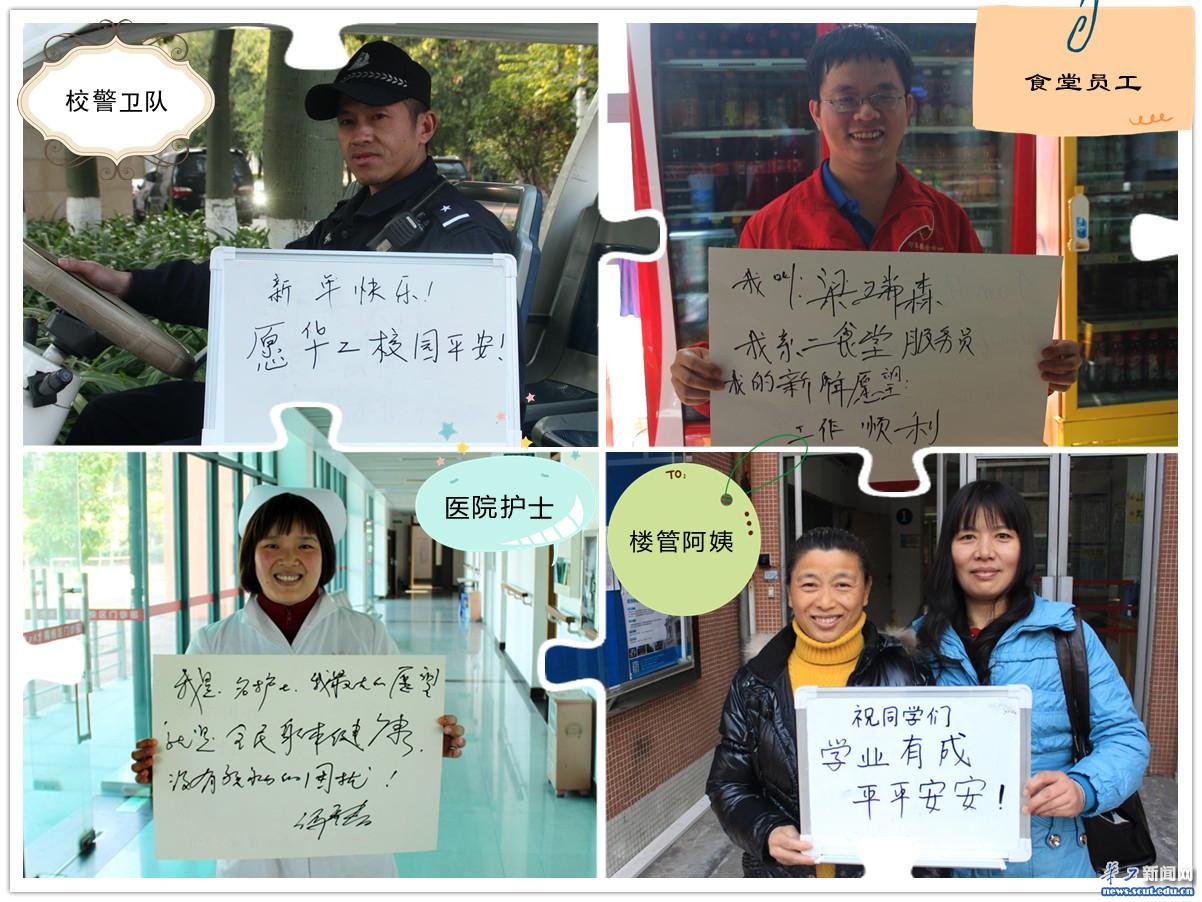 校警卫队
新年快乐!
愿华工校园平安!
食堂员工
我叫:梁瑞森
我系二食堂服务员
我的新牌愿望:
工作顺利
医院护士
我是名护士,我最大的愿望
就是全民身体健康,
没有疾病的困扰!
TO:
楼管阿姨
1
祝同学们
学业有成
平平安安!
华工新闻网
news.scut.edu.cn